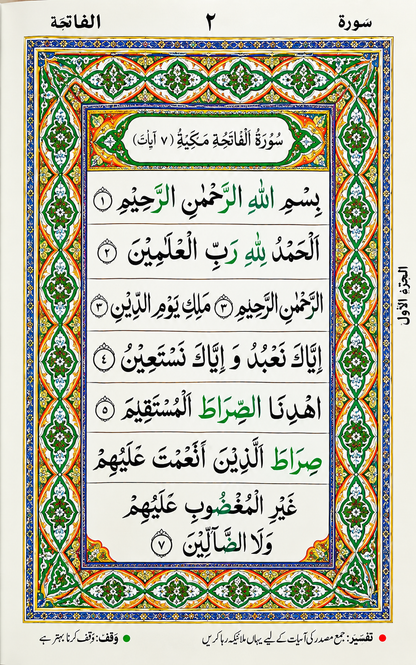 سورة ٢ الفاتحة
سُوْرَةُ الْفَاتِحَةِ مَكِّيَةٌ (٧ آيات)
بِسْمِ اللهِ الرَّحْمٰنِ الرَّحِيْمِ ١
اَلْحَمْدُ لِلّٰهِ رَبِّ الْعٰلَمِيْنَ ٢
الرَّحْمٰنِ الرَّحِيْمِ ٣ مٰلِكِ يَوْمِ الدِّيْنِ ٣
إِيَّاكَ نَعْبُدُ وَ إِيَّاكَ نَسْتَعِيْنُ ٤
اهْدِنَا الصِّرَاطَ الْمُسْتَقِيْمَ ٥
صِرَاطَ الَّذِيْنَ أَنْعَمْتَ عَلَيْهِمْ
غَيْرِ الْمَغْضُوبِ عَلَيْهِمْ
وَلَا الضَّآلِّيْنَ ٧
الجزء الأول
تفسیر: جمع مصدر کی آمیات کے لیے یہاں ملائیکہ رہا کریں
وقف: وقف کرنا بہتر ہے